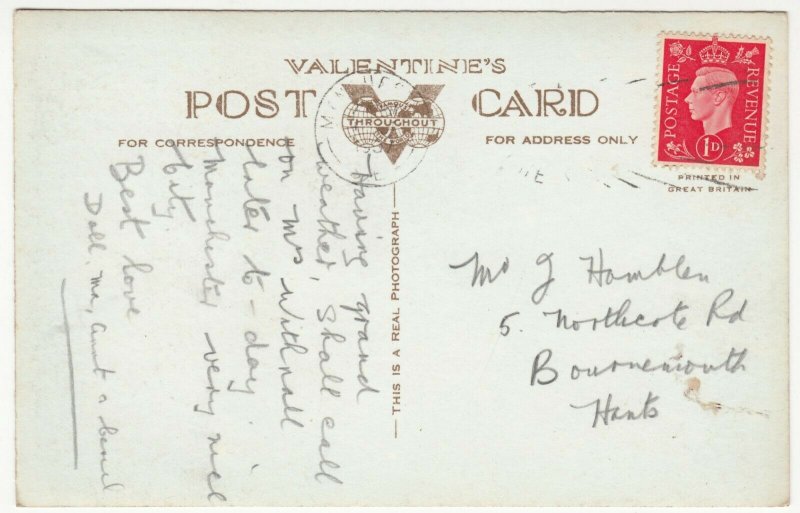 VALENTINE'S
POST CARD
THROUGHOUT
THE WORLD
FOR CORRESPONDENCE
FOR ADDRESS ONLY
POSTAGE
REVENUE
1D
PRINTED IN
GREAT BRITAIN
THIS IS A REAL PHOTOGRAPH
Having grand
weather, Shall call
on Mrs Withnall
later to-day
Manchester very nice
City
Best love
Doll, Ma, Aunt &
5. Northcote Rd
Bournemouth
Hants